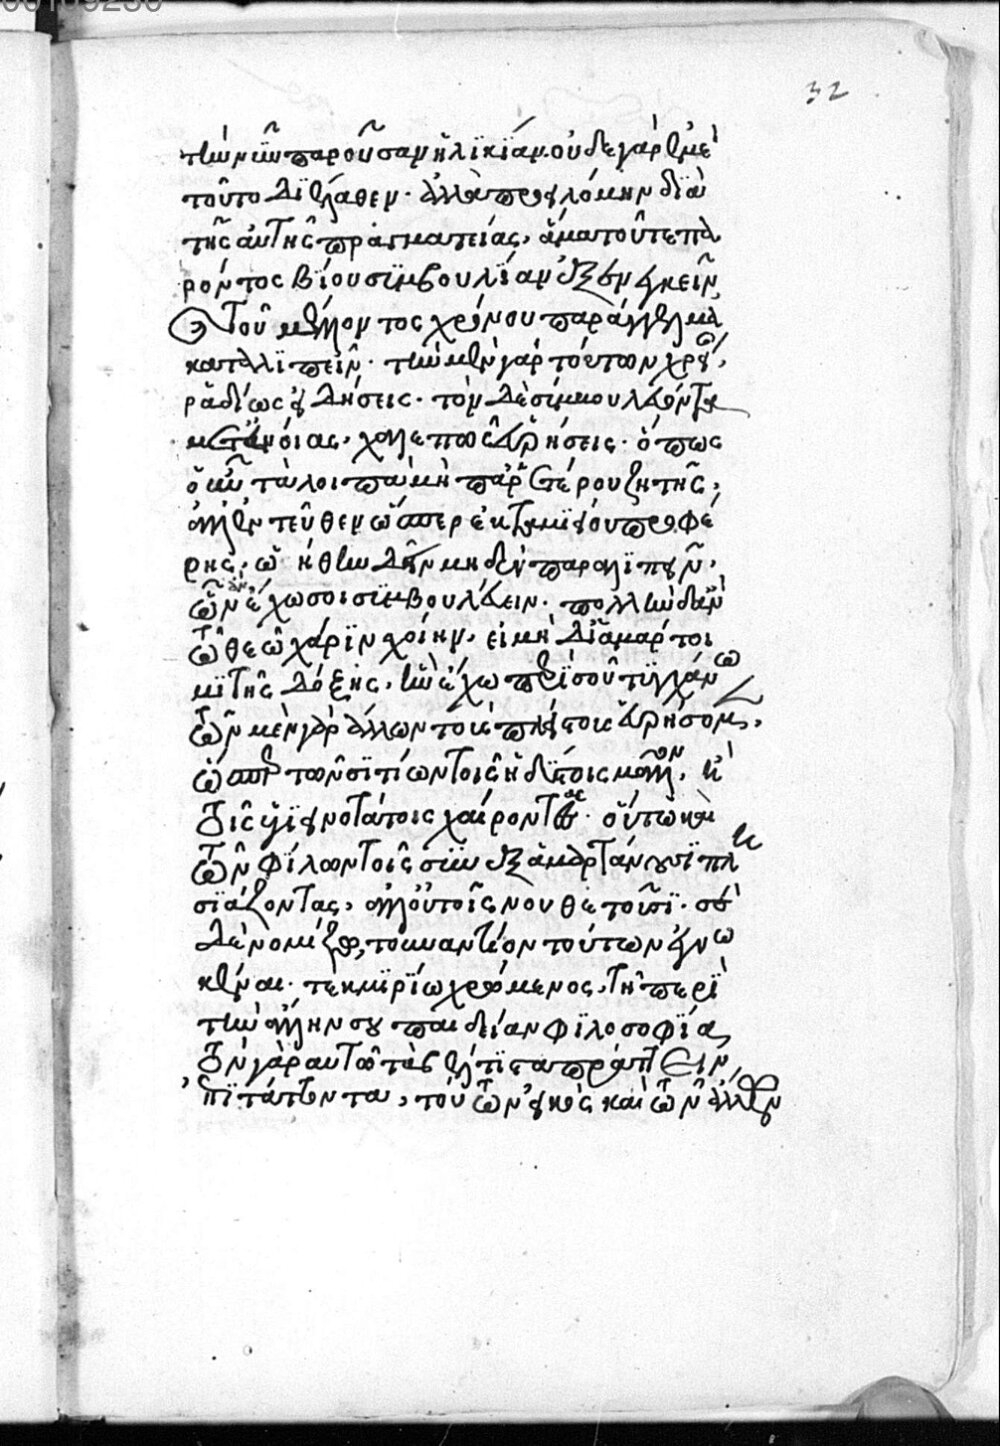 32
τὴν νῦν παροῦσαν ἡλικίαν. οὐδὲ γὰρ ἐμὲ
τοῦτο διέλαθεν· ἀλλὰ προειλόμην διὰ
τῆς αὐτῆς πραγματείας, ἅμα τοῦ τε πα
ρόντος βίου συμβουλίαν ἐξενεγκεῖν
καὶ τοῦ μέλλοντος χρόνου παράγγελμα
καταλιπεῖν· τὴν μὲν γὰρ τούτων χρείαν,
ῥαδίως εἰδήσεις· τὸν δὲ συμβουλεύοντα
μετ' εὐνοίας, χαλεπῶς εὑρήσεις· ὅπως
οὖν τὰ λοιπὰ μὴ παρ' ἑτέρου ζητῇς,
ἀλλ' ἐντεῦθεν ὥσπερ ἐκ ταμιείου προφέ
ρῃς, ᾠήθην δεῖν μηδὲν παραλιπεῖν,
ὧν ἔχω σοι συμβουλεύειν· πολλὴν δ' ἂν
τῷ θεῷ χάριν ἔχοιμι, εἰ μὴ διαμάρτοι
μι τῆς δόξης, ἣν ἔχω περὶ σοῦ τυγχάνω
τῶν μὲν γὰρ ἄλλων τοὺς πλείστους εὑρήσομεν,
ὥσπερ τῶν σιτίων τοῖς ἡδίστοις μᾶλλον, ἢ
τοῖς ὑγιεινοτάτοις χαίροντας· οὕτω καὶ
τῶν φίλων τοῖς συνεξαμαρτάνουσι πλη
σιάζοντας, ἀλλ' οὐ τοῖς νουθετοῦσι· σὲ
δὲ νομίζω, τοὐναντίον τούτων ἐγνω
κέναι· τεκμηρίῳ χρώμενος, τῇ περὶ
τὴν ἄλλην σου παιδείαν φιλοσοφίᾳ
τὸν γὰρ αὑτῷ τὰ βέλτιστα πράττειν,
ἐπιτάττοντα, τοῦτον εἰκὸς καὶ τῶν ἄλλων